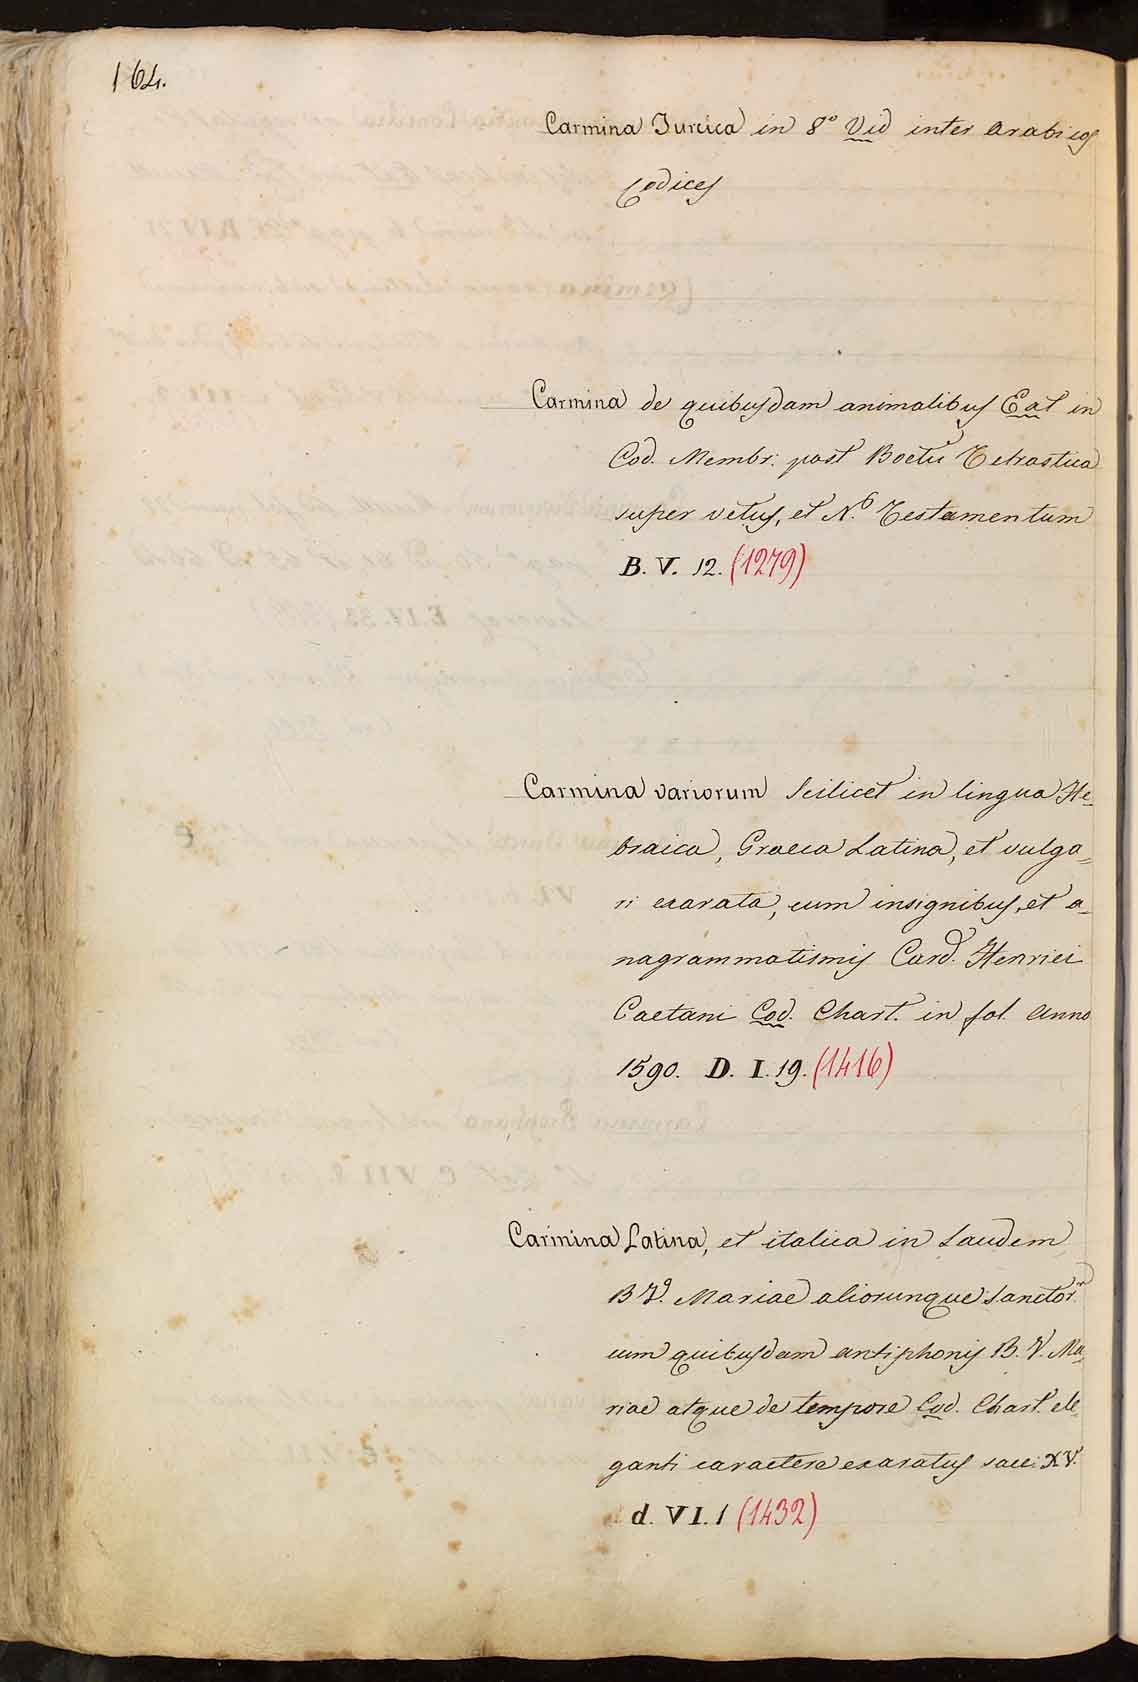 164.
Carmina Turcica in 8° Vid inter Arabicos
Codices
Carmina de quibusdam animalibus Eat in
Cod. Membr. post Boetii Tetrastica
super vetus, et N.° Testamentum
B. V. 12. (1279)
Carmina variorum Scilicet in lingua He-
braica, Graeca Latina, et vulga-
ri exarata, cum insignibus, et a-
nagrammatismis Card. Henrici
Caetani Cod. Chart. in fol. Anno
1590. D. I. 19. (1416)
Carmina Latina, et italica in Laudem
B V.ª Mariae aliorunque Sanctor.m
cum quibusdam antiphonis B. V. Ma-
riae atque de tempore Cod. Chart. ele-
ganti caractere exaratus saec: XV.
d. VI. 1 (1432)